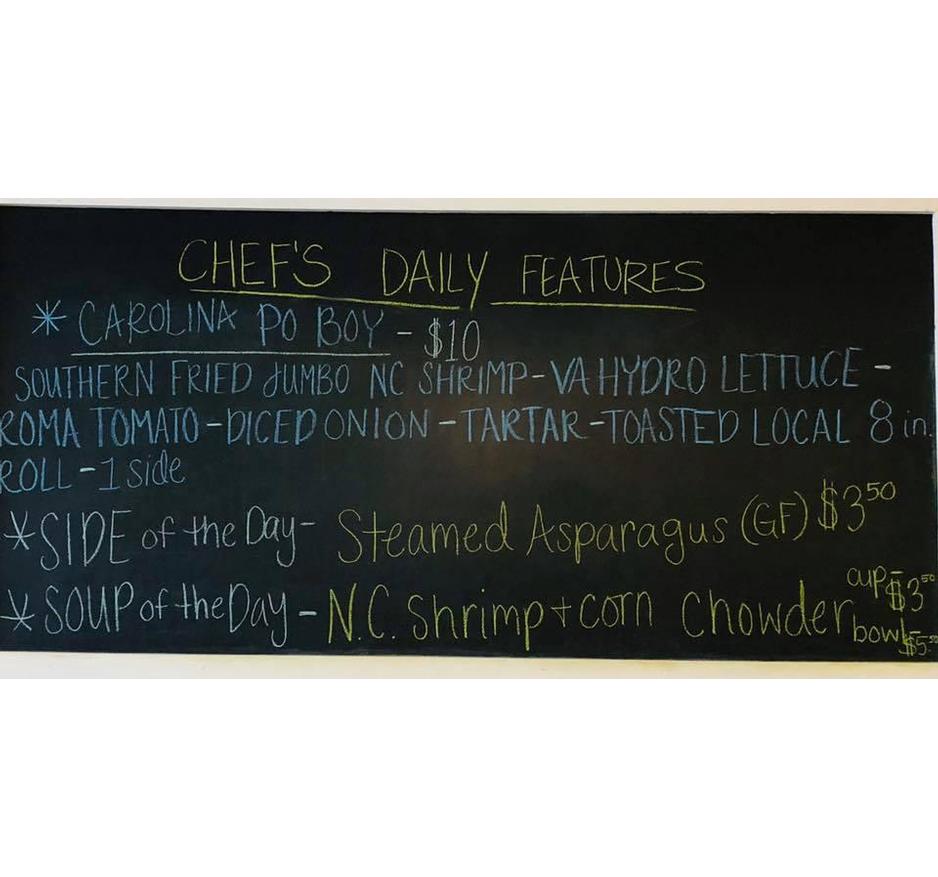 CHEF'S DAILY FEATURES
* CAROLINA PO BOY - $10
SOUTHERN FRIED JUMBO NC SHRIMP - VA HYDRO LETTUCE -
ROMA TOMATO - DICED ONION - TARTAR - TOASTED LOCAL 8 in.
ROLL - 1 side
* SIDE of the Day - Steamed Asparagus (GF) $3.50
* SOUP of the Day - N.C. Shrimp + corn Chowder cup - $3.50
bowl - $5.50